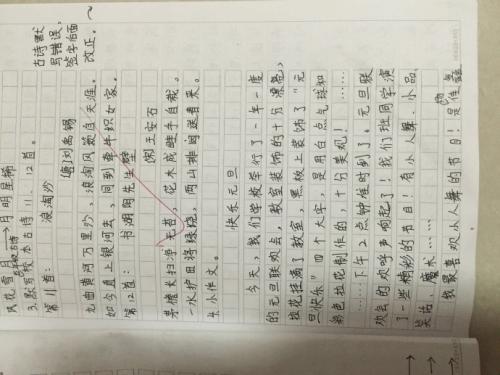 古诗默
写错误,
签字后面
改正。
风花雪月→月明星稀
3.默写校本古诗11、12首。
第11首: 浪淘沙
唐 刘禹锡
九曲黄河万里沙,浪淘风簸自天涯。
如今直上银河去,同到牵牛织女家。
第12首: 书湖阴先生壁
宋 王安石
茅檐长扫净无苔,花木成畦手自栽。
一水护田将绿绕,两山排闼送青来。
4.小作文。
快乐元旦
今天,我们学校举行了一年一度
的元旦联欢会,教室装饰的十分漂亮,
拉花挂满了教室,黑板上装饰了“元
旦快乐”四个大字,是用白点气球和
彩色拉花制作的,十分美观!……
……下午2点钟准时到了。元旦联
欢会的欢呼声响起了!我们班同学演
了一些精彩的节目!有小人舞、小品、
笑话、魔术……
我最喜欢小人舞的节目!是佳鑫